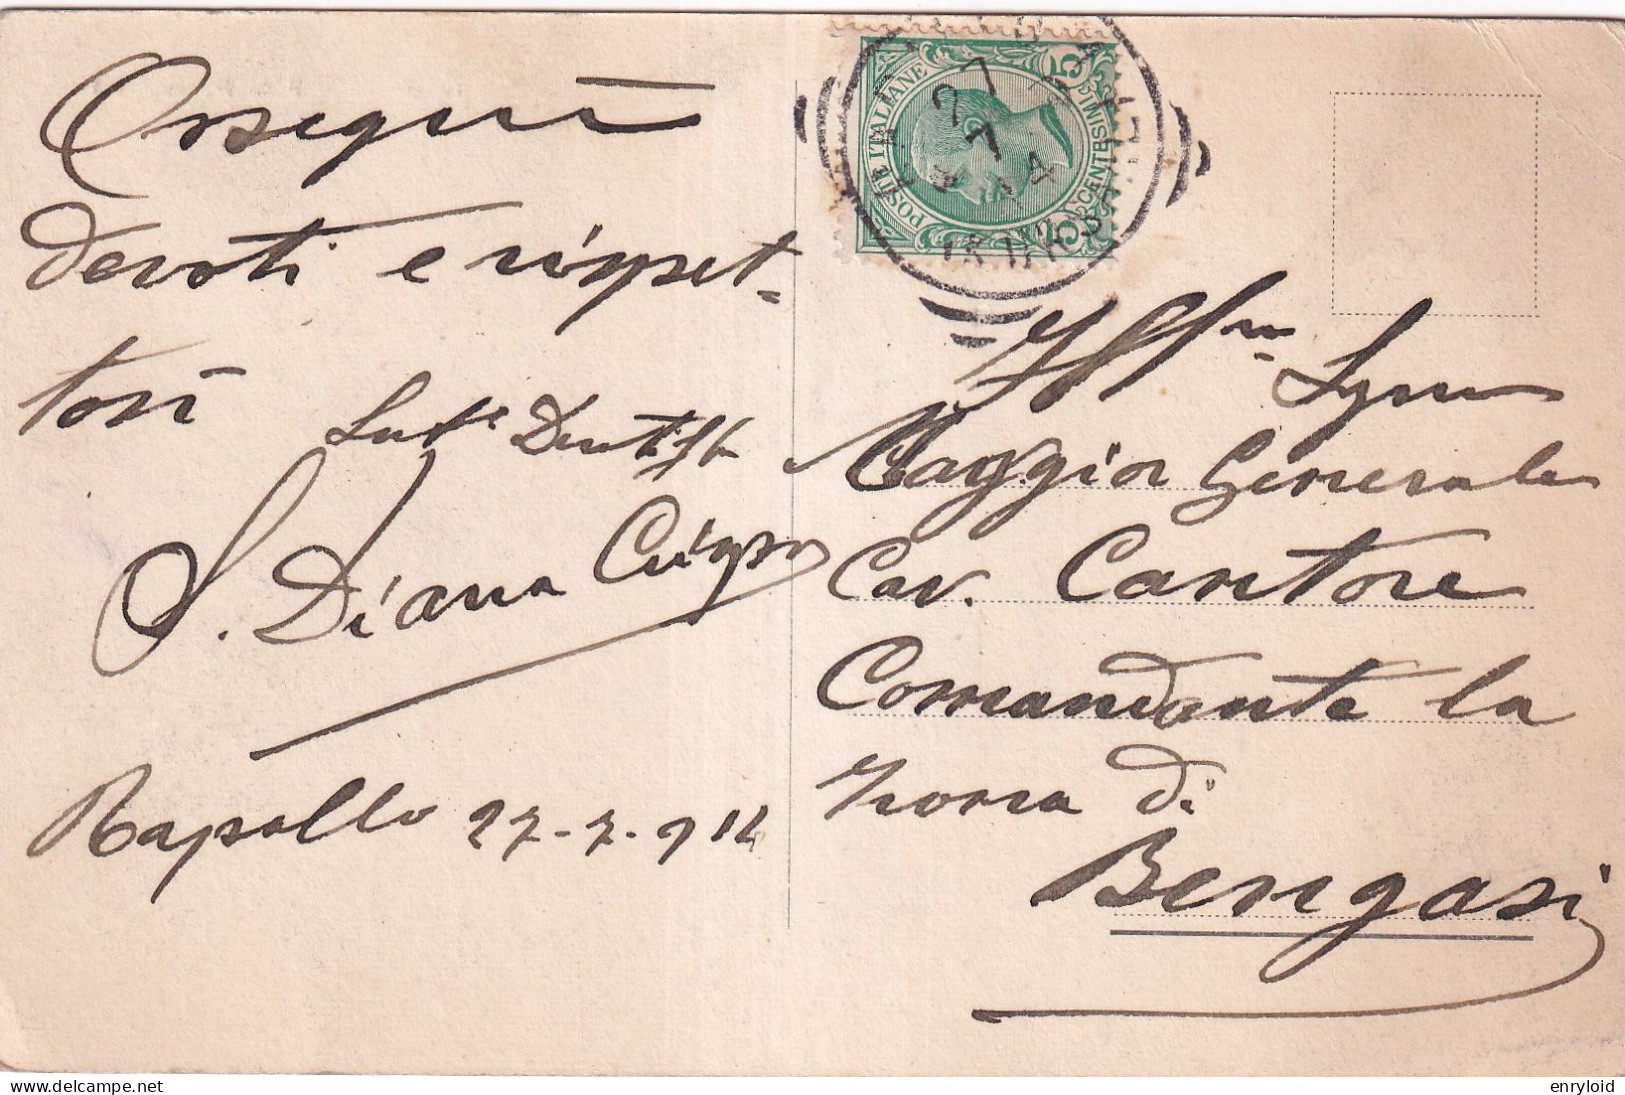 Ossequi
devoti e rispet=
tosi
Dentista
S. Diana Crispo
Rapallo 27-7-914
POSTE ITALIANE
CENTESIMI
5
5
27
7
14
Ill.mo Signor
Maggior Generale
Cav. Cantore
Comandante la
Zona di
Bengasi
enryloid
delcampe.net